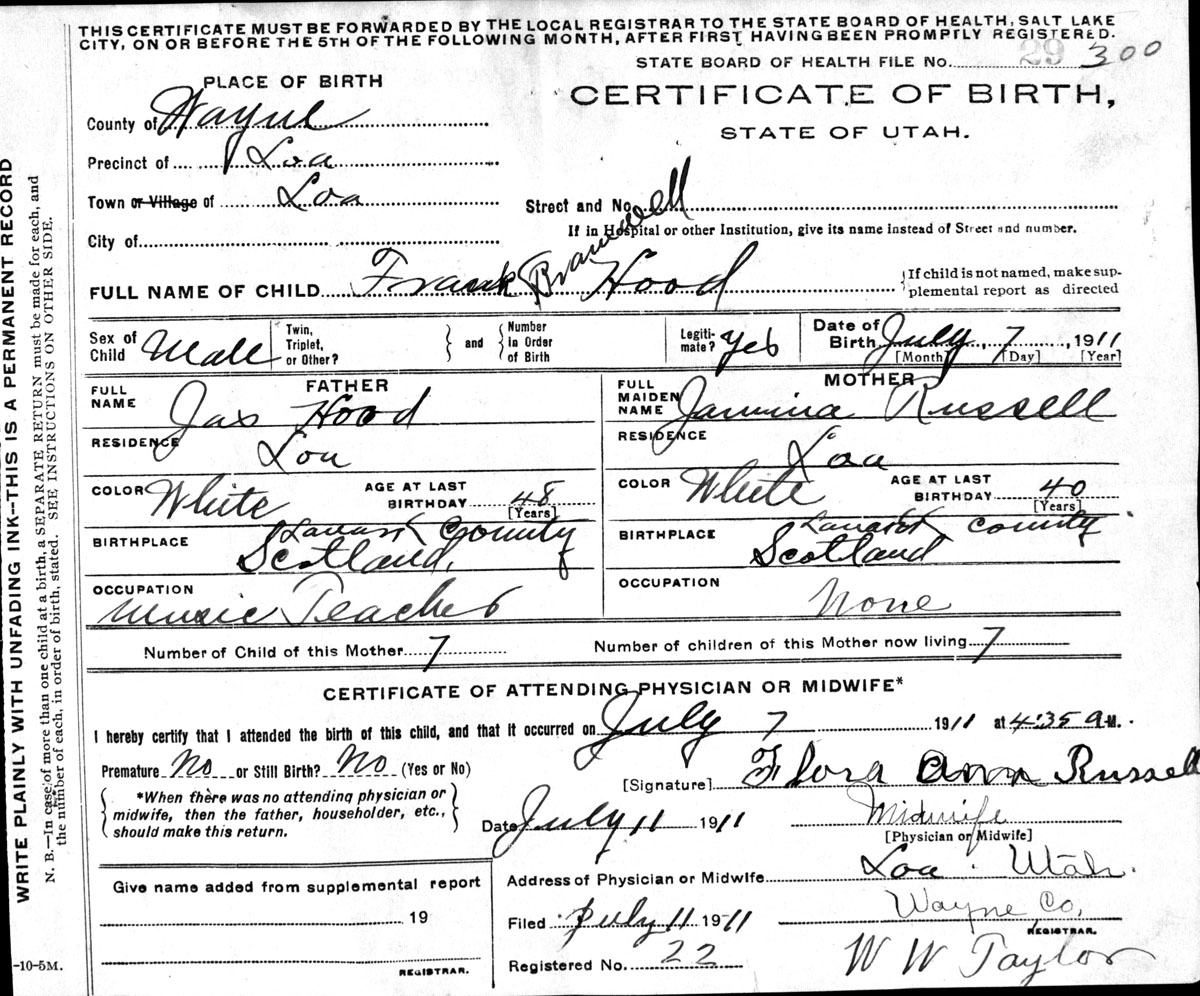 THIS CERTIFICATE MUST BE FORWARDED BY THE LOCAL REGISTRAR TO THE STATE BOARD OF HEALTH, SALT LAKE
CITY, ON OR BEFORE THE 5TH OF THE FOLLOWING MONTH, AFTER FIRST HAVING BEEN PROMPTLY REGISTERED.
STATE BOARD OF HEALTH FILE No. 29 300
PLACE OF BIRTH
CERTIFICATE OF BIRTH,
STATE OF UTAH.
County of Wayne
Precinct of Loa
Town or Village of Loa
Street and No.
If in Hospital or other Institution, give its name instead of Street and number.
City of
FULL NAME OF CHILD Frank Bramwell Hood
If child is not named, make sup-
plemental report as directed
Sex of Child Male
Twin, Triplet, or Other?
and
Number In Order of Birth
Legiti-mate? Yes
Date of Birth July 7, 1911
[Month] [Day] [Year]
FATHER
FULL NAME Jas Hood
RESIDENCE Loa
COLOR White
AGE AT LAST BIRTHDAY 48
[Years]
BIRTHPLACE Lanark County
Scotland.
OCCUPATION
Music Teacher
MOTHER
FULL MAIDEN NAME Jamina Russell
RESIDENCE Loa
COLOR White
AGE AT LAST BIRTHDAY 40
[Years]
BIRTHPLACE Lanark County
Scotland
OCCUPATION
None
Number of Child of this Mother 7
Number of children of this Mother now living 7
CERTIFICATE OF ATTENDING PHYSICIAN OR MIDWIFE*
I hereby certify that I attended the birth of this child, and that it occurred on July 7 1911 at 4:35 a M.
Premature No or Still Birth? No (Yes or No)
[Signature] Flora Ann Russell
*When there was no attending physician or
midwife, then the father, householder, etc.,
should make this return.
Date July 11 1911
Midwife
[Physician or Midwife]
Address of Physician or Midwife Loa Utah.
Give name added from supplemental report
19
REGISTRAR.
Filed July 11 1911
Wayne Co,
REGISTRAR.
Registered No. 22
W W Taylor
-10-5M.
WRITE PLAINLY WITH UNFADING INK--THIS IS A PERMANENT RECORD
N. B.—In case of more than one child at a birth, a SEPARATE RETURN must be made for each, and
the number of each, in order of birth, stated. SEE INSTRUCTIONS ON OTHER SIDE.